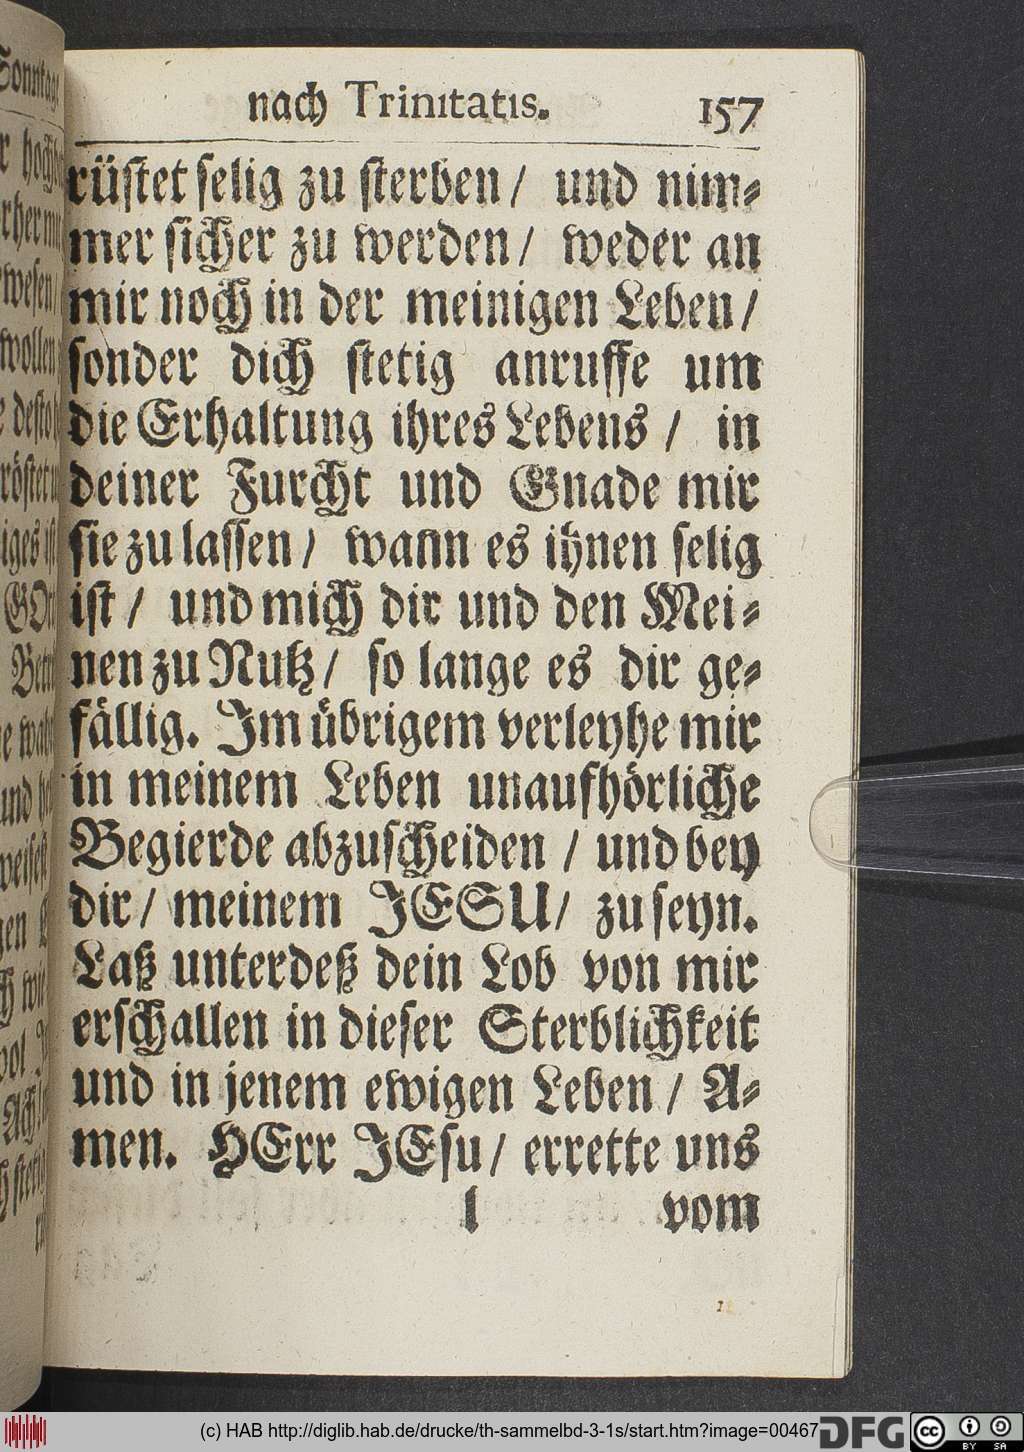 nach Trinitatis. 157
rüstet selig zu sterben / und nim-
mer sicher zu werden / weder an
mir noch in der meinigen Leben /
sonder dich stetig anruffe um
die Erhaltung ihres Lebens / in
deiner Furcht und Gnade mir
sie zu lassen / wann es ihnen selig
ist / und mich dir und den Mei-
nen zu Nutz / so lange es dir ge-
fällig. Im übrigem verleyhe mir
in meinem Leben unaufhörliche
Begierde abzuscheiden / und bey
dir / meinem JESU / zu seyn.
Laß unterdeß dein Lob von mir
erschallen in dieser Sterblichkeit
und in jenem ewigen Leben / A-
men. HErr JEsu / errette uns
l vom
(c) HAB http://diglib.hab.de/drucke/th-sammelbd-3-1s/start.htm?image=00467
DFG
cc BY SA